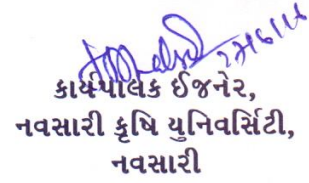 27/6/16
કાર્યપાલક ઈજનેર,
નવસારી કૃષિ યુનિવર્સિટી,
નવસારી